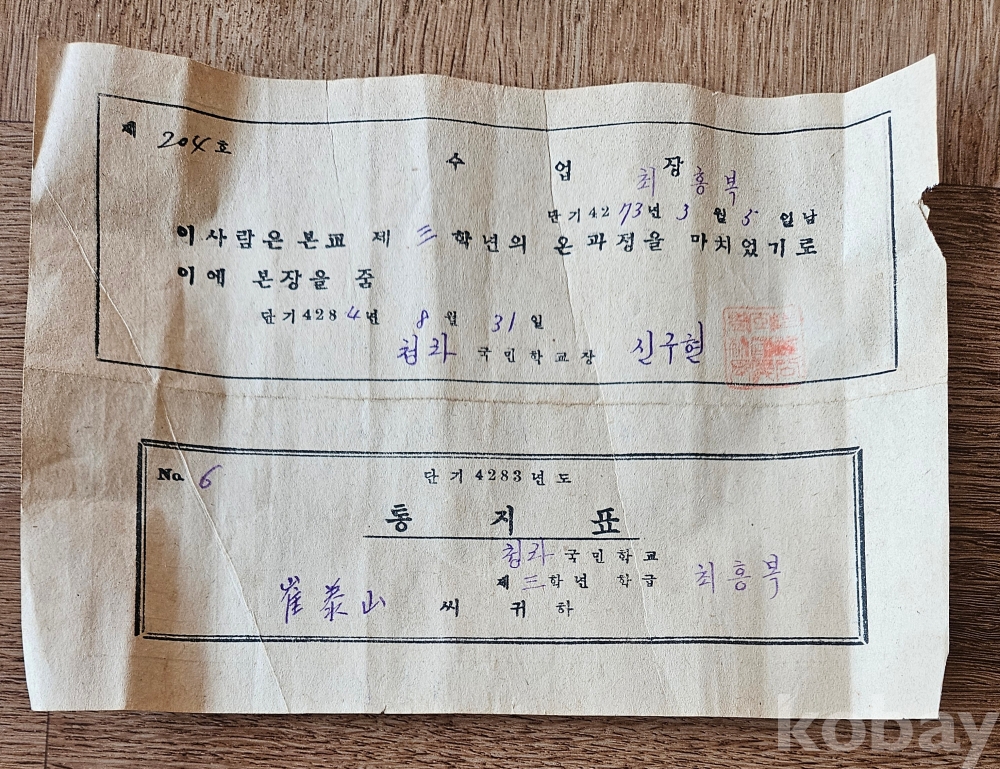 제 204호
수 업 장
최흥복
단기4273년 3월 5일남
이사람은본교 제 三 학년의 온과정을 마치었기로
이에 본장을 줌
단기4284년 8월 31일
청라 국민학교장 신구현
No 6
단기4283년도
통 지 표
청라 국민학교
제三학년 학급 최흥복
崔泰山 씨 귀하
kobay